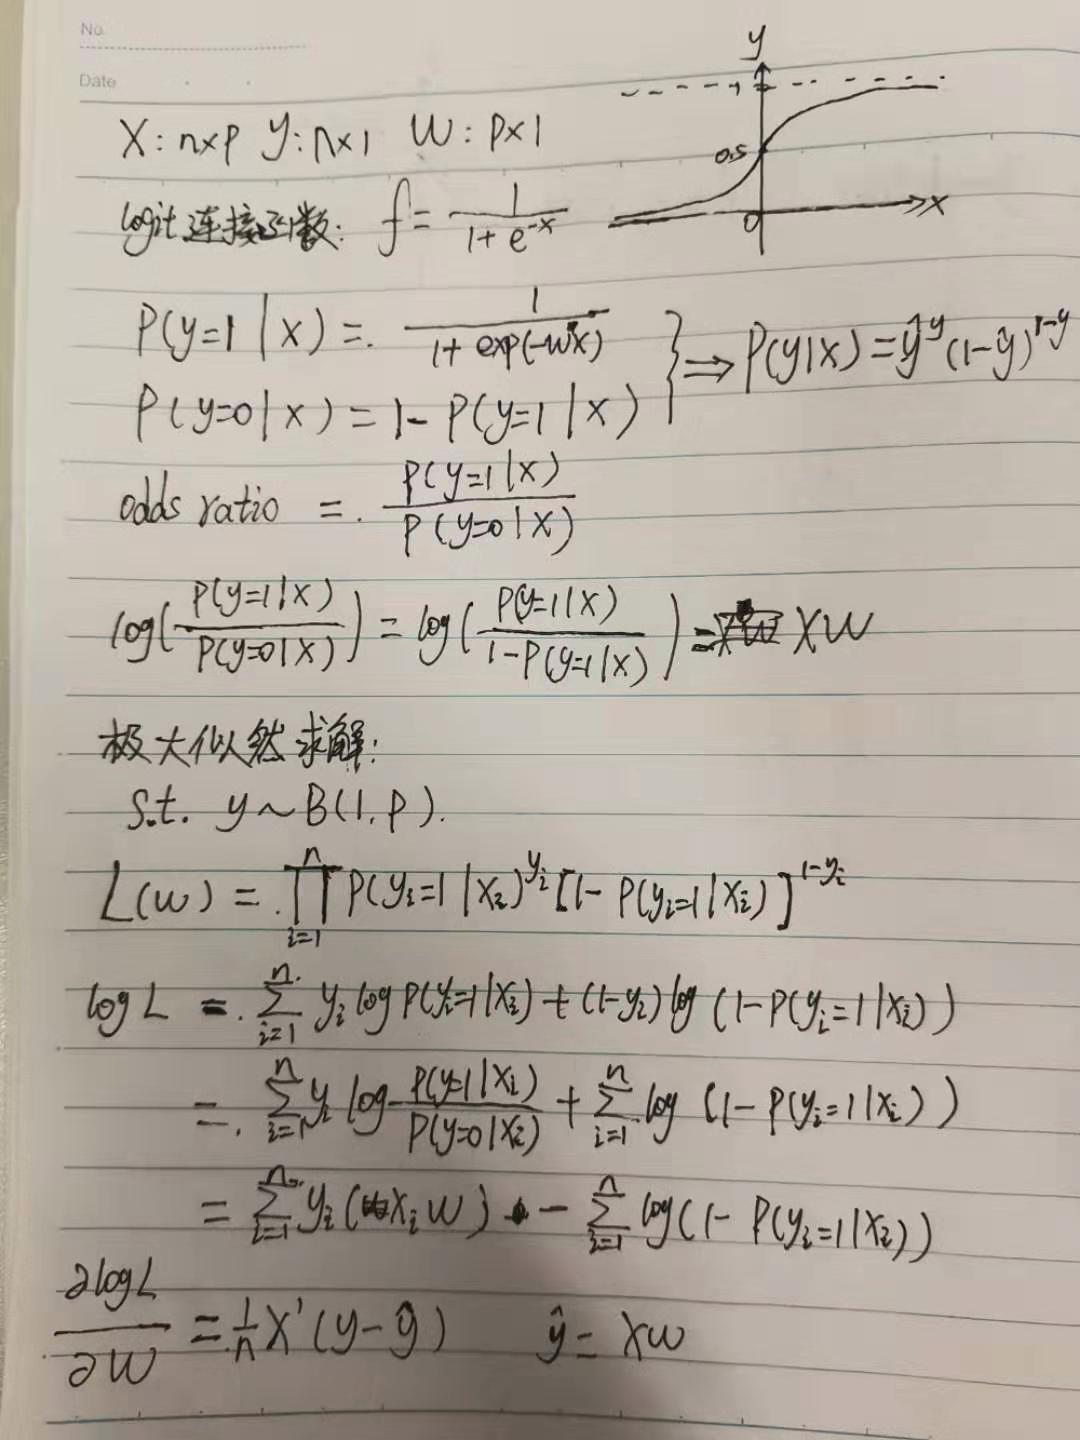 No.
Date
y
1
0.5
0
x
X: n×p y: n×1 W: p×1
logit连接函数: f = 1/(1+e^{-x})
P(y=1|x) = 1/(1+exp(-w'x))
P(y=0|x) = 1-P(y=1|x)
} ⇒ P(y|x) = ŷ^y (1-ŷ)^{1-y}
odds ratio = P(y=1|x)/P(y=0|x)
log(P(y=1|x)/P(y=0|x)) = log(P(y=1|x)/(1-P(y=1|x))) = XW
极大似然求解:
s.t. y~B(1,p).
L(w) = ∏_{i=1}^{n} P(y_i=1|x_i)^{y_i} [1-P(y_i=1|x_i)]^{1-y_i}
log L = ∑_{i=1}^{n} y_i log P(y_i=1|x_i) + (1-y_i) log (1-P(y_i=1|x_i))
= ∑_{i=1}^{n} y_i log P(y=1|x_i)/P(y=0|x_i) + ∑_{i=1}^{n} log (1-P(y_i=1|x_i))
= ∑_{i=1}^{n} y_i (x_i w) - ∑_{i=1}^{n} log(1-P(y_i=1|x_i))
∂log L/∂W = 1/n X'(y-ŷ) ŷ = XW